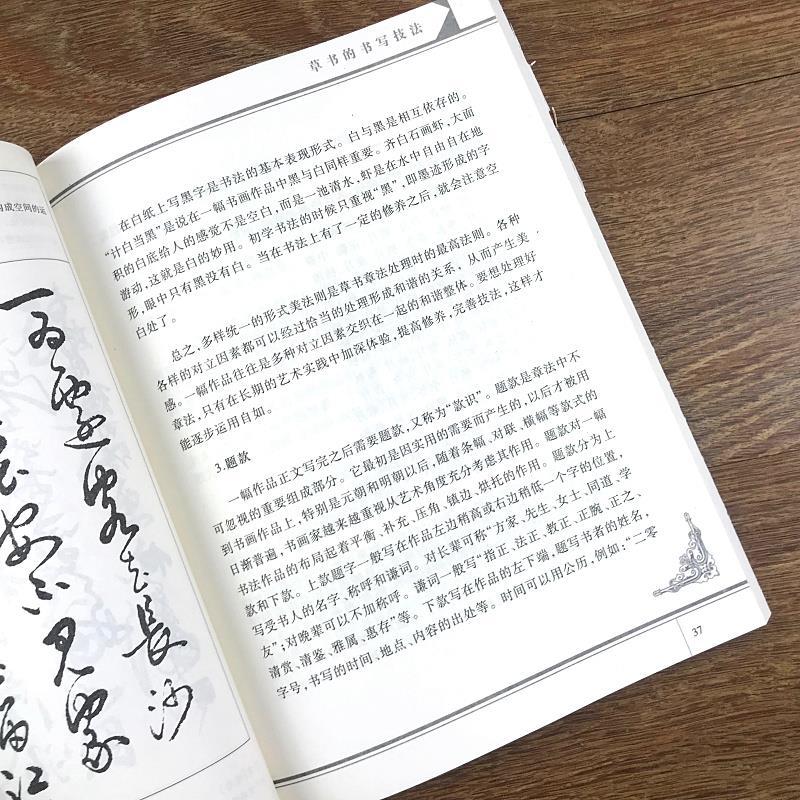 成空间的运
長沙
江
草书的书写技法
在白纸上写黑字是书法的基本表现形式。白与黑是相互依存的。
“计白当黑”是说在一幅书画作品中黑与白同样重要。齐白石画虾,大面
积的白底给人的感觉不是空白,而是一池清水,虾是在水中自由自在地
游动,这就是白的妙用。初学书法的时候只重视“黑”,即墨迹形成的字
形,眼中只有黑没有白。当在书法上有了一定的修养之后,就会注意空
白处了。
总之,多样统一的形式美法则是草书章法处理时的最高法则。各种
各样的对立因素都可以经过恰当的处理形成和谐的关系,从而产生美
感。一幅作品往往是多种对立因素交织在一起的和谐整体。要想处理好
章法,只有在长期的艺术实践中加深体验,提高修养,完善技法,这样才
能逐步运用自如。
3.题款
一幅作品正文写完之后需要题款,又称为“款识”。题款是章法中不
可忽视的重要组成部分。它最初是因实用的需要而产生的,以后才被用
到书画作品上,特别是元朝和明朝以后,随着条幅、对联、横幅等款式的
日渐普遍,书画家越来越重视从艺术角度充分考虑其作用。题款对一幅
书法作品的布局起着平衡、补充、压角、镇边、烘托的作用。题款分为上
款和下款。上款题字一般写在作品左边稍高或右边稍低一个字的位置,
写受书人的名字、称呼和谦词。对长辈可称“方家、先生、女士、同道、学
友”;对晚辈可以不加称呼。谦词一般写“指正、法正、教正、正腕、正之、
清赏、清鉴、雅属、惠存”等。下款写在作品的左下端,题写书者的姓名,
字号,书写的时间、地点、内容的出处等。时间可以用公历,例如:“二零
37